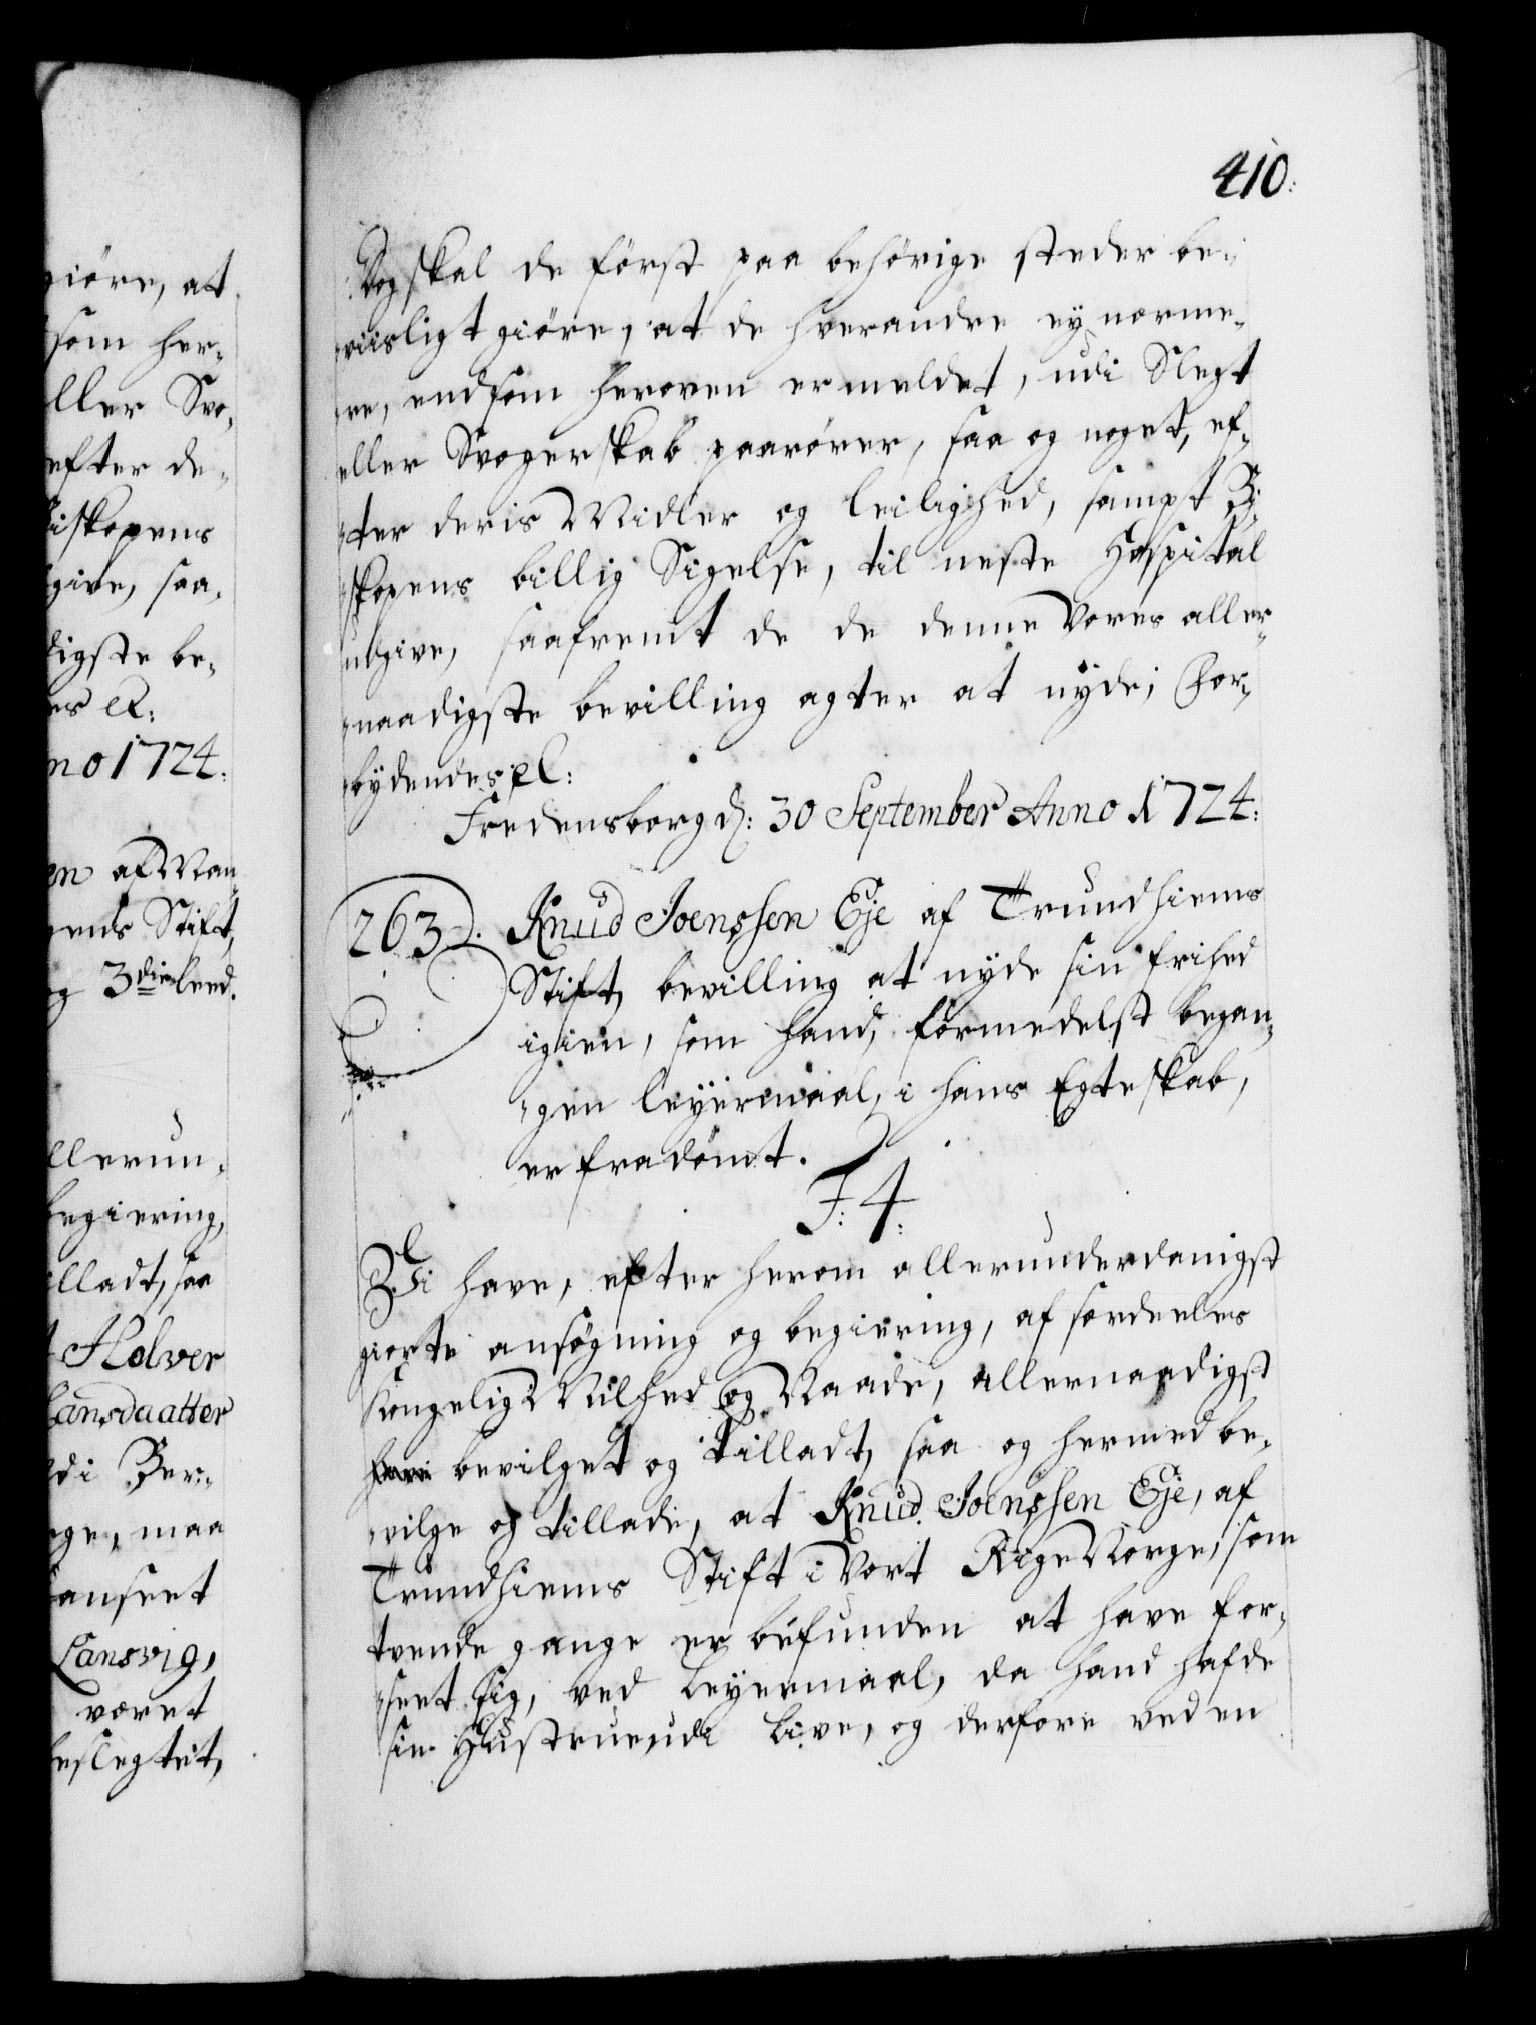 giöre, at
som her-
ller Svo-
efter de-
iskopens
give, saa-
digste be-
es etc:
no 1724:
en af Man-
ends Stift,
g 3die leed.
llerun-
begiering,
illadt, saa
t Holver
Hansdaatter
di Ber-
ge, maa
anseet
Lansvig,
været
eslegtet,
410:
Dog skal de först paa behörige steder be-
viisligt giöre, at de hverandre ey nærme-
re, end som heroven er meldet, udi Slegt
eller Svogerskab paarörer, saa og noget, ef-
ter deris Midler og leilighed, sampt Bi-
skopens billig Sigelse, til neste Hospital
udgive, saafremt de de denne Vores aller-
naadigste bevilling agter at nyde; For-
bydendes etc:
Fredensborg d: 30 September Anno 1724:
263. Knud Joenssen Eje af Trundhiems
Stift, bevilling at nyde sin frihed
igien, som hand, formedelst began-
gen leyermaal, i hans Egteskab,
er fradömt.
F: 4:
Vi have, efter herom allerunderdanigst
giorte ansögning og begiering, af sordeeles
Kongelig Milhed og Naade, allernaadigst
have bevilget og tilladt, saa og hermed be-
vilge og tillade, at Knud Joenssen Eje, af
Trundhiems Stift i Vort Rige Norge, som
tvende gange er befunden at have for-
seet sig, ved Leyermaal, da hand hafde
sin Hustrue udi Live, og derfore ved en